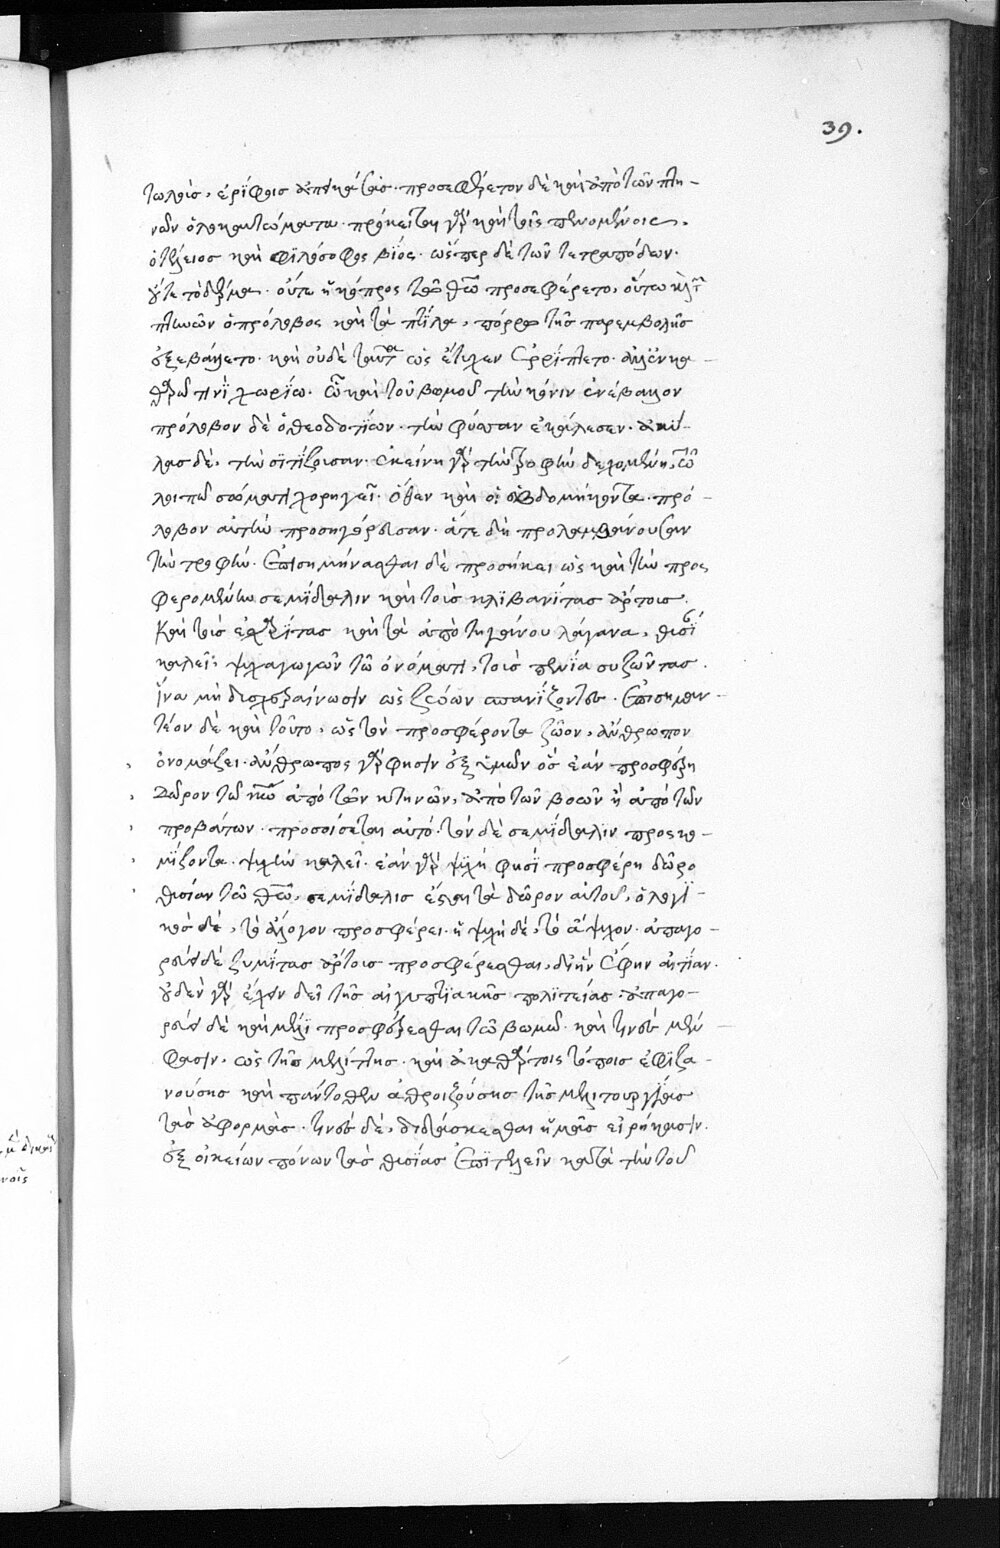 39.
τωλοὺς, ἐρίφοις ἀπεικάσας. προσεφέρετον δὲ καὶ ἀπὸ τῶν πτη-
νῶν ὁλοκαυτώματα. πρόκειται γὰρ καὶ τοῖς πενομένοις.
ὁ τέλειος καὶ φιλόσοφος βίος. ὥσπερ δὲ τῶν τετραπόδων.
οὔτε τὸ δέρμα. οὔτε ἡ κόπρος τῷ θεῷ προσεφέρετο, οὕτω καὶ τῶν
πτηνῶν ὁ πρόλοβος καὶ τὰ πτίλα, πόρρω τῆς παρεμβολῆς
ἐξεβάλλετο. καὶ οὐδὲ ταῦτα ὡς ἔτυχεν ἐρρίπτετο. ἀλλ' ἐν κα-
θαρῷ τινὶ χωρίῳ. ᾧ καὶ τοῦ βωμοῦ τὴν κόνιν ἐνέβαλλον
πρόλοβον δὲ ὁ θεοδοτίων. τὴν φύσαν ἐκάλεσεν. ἀκύ-
λας δὲ, τὴν σιτίζουσαν. ἐκείνη γὰρ τὴν τροφὴν δεχομένη, τῷ
λοιπῷ σώματι χορηγεῖ. ὅθεν καὶ οἱ ἑβδομήκοντα. πρό-
λοβον αὐτὴν προσηγόρευσαν. ἅτε δὴ προλαμβάνουσαν
τὴν τροφήν. ἐπισημήνασθαι δὲ προσήκει ὡς καὶ τὴν προς
φερομένην σεμίδαλιν καὶ τοὺς κλιβανίτας ἄρτους.
καὶ τοὺς ἐσχαρίτας καὶ τὰ ἀπὸ τηγάνου λάγανα, θυσί
καλεῖ, ψυχαγωγῶν τῷ ὀνόματι, τοὺς πενίᾳ συζῶντας.
ἵνα μὴ δυσχεραίνωσιν ὡς ζώων σπανίζοντες. ἐπισημαν-
τέον δὲ καὶ τοῦτο, ὡς τὸν προσφέροντα ζῶον, ἄνθρωπον
ὀνομάζει. ἄνθρωπος γὰρ φησὶν ἐξ ὑμῶν ὃς ἐὰν προσφέρῃ
δῶρον τῷ κυρίῳ ἀπὸ τῶν κτηνῶν, ἀπὸ τῶν βοῶν ἢ ἀπὸ τῶν
προβάτων. προσοίσεται αὐτό. τὸν δὲ σεμίδαλιν προσκο-
μίζοντα. ψυχὴν καλεῖ. ἐὰν γὰρ ψυχή φησὶ προσφέρῃ δῶρο
θυσίαν τῷ θεῷ, σεμίδαλις ἔσται τὸ δῶρον αὐτοῦ, ὁ λογι-
κὸς δὲ, τὸ ἄλογον προσφέρει. ἡ ψυχὴ δὲ, τὸ ἄψυχον. ἀπαγο-
ρεύει δὲ ζυμίτας ἄρτους προσφέρεσθαι, δι' ἣν ἔφην αἰτίαν.
οὐδὲν γὰρ ἔχειν δεῖ τῆς αἰγυπτιακῆς πολιτείας. ἀπαγο-
ρεύει δὲ καὶ μέλι προσφέρεσθαι τῷ βωμῷ. καὶ τινὲς μέν
φασιν, ὡς τῆς μελίττης. καὶ ἀκαθάρτοις τόποις ἐφιζα-
νούσης καὶ πάντοθεν ἀθροιζούσης τῆς μελιτουργίας
τὰς ἀφορμάς. τινὲς δὲ, διδάσκεσθαι ἡμᾶς εἰρήκασιν.
ἐξ οἰκείων πόνων τὰς θυσίας ἐπιτελεῖν κατὰ τὴν τοῦ